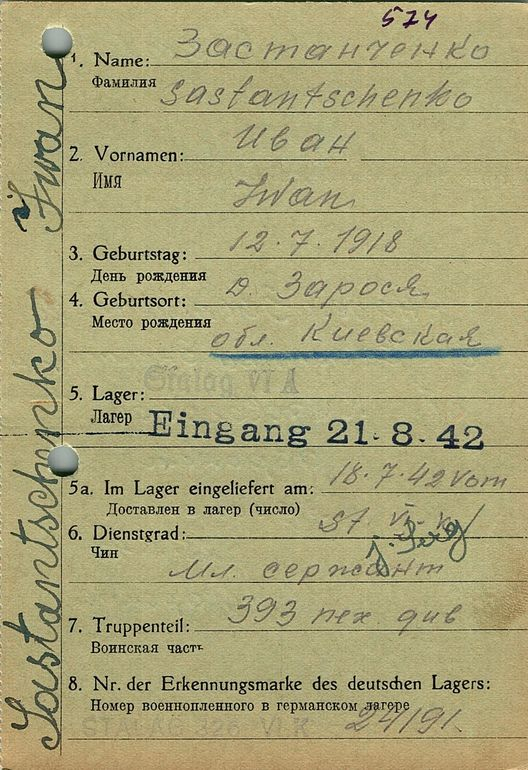 574
1. Name: Застанченко
Фамилия Sastantschenko
2. Vornamen: Иван
Имя Iwan
3. Geburtstag: 12.7.1918
День рождения
4. Geburtsort: д. Зарося
Место рождения обл. Киевская
Stalag VI A
5. Lager:
Лагер Eingang 21.8.42
5a. Im Lager eingeliefert am: 18.7.42 vom
Доставлен в лагер (число) St. VI
6. Dienstgrad:
Чин Мл. сержант
7. Truppenteil: 393 пех див
Воинская часть
8. Nr. der Erkennungsmarke des deutschen Lagers:
Номер военнопленного в германском лагере
STALAG 326 VI K 24191
Sastantschenko Iwan